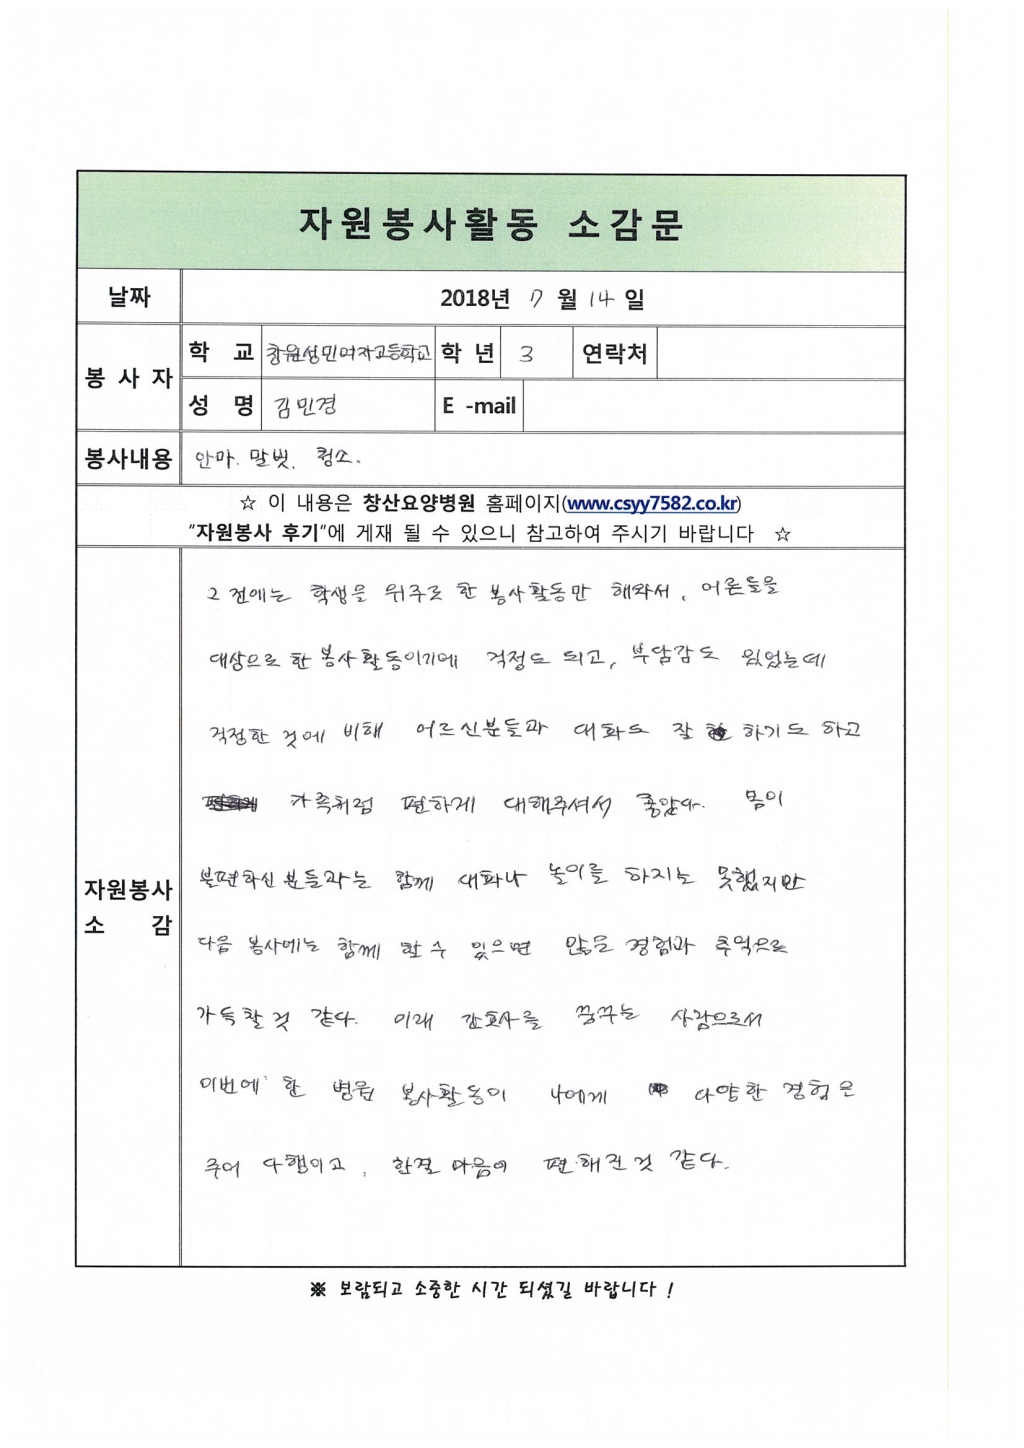 자원봉사활동 소감문
날짜 2018년 7 월 14 일
봉 사 자
학 교 창원성민여자고등학교 학 년 3 연락처
성 명 김민경 E -mail
봉사내용 안마. 말벗. 청소.
☆ 이 내용은 창산요양병원 홈페이지(www.csyy7582.co.kr)
“자원봉사 후기”에 게재 될 수 있으니 참고하여 주시기 바랍니다 ☆
자원봉사
소 감
그 전에는 학생을 위주로 한 봉사활동만 해와서, 어른들을
대상으로 한 봉사활동이기에 걱정도 되고, 부담감도 있었는데
걱정한 것에 비해 어르신분들과 대화도 잘 하기도 하고
가족처럼 편하게 대해주셔서 좋았다. 몸이
불편하신 분들과는 함께 대화나 놀이를 하지는 못했지만
다음 봉사에는 함께 할 수 있으면 많은 경험과 추억으로
가득할것 같다. 미래 간호사를 꿈꾸는 사람으로서
이번에 한 병원 봉사활동이 나에게 다양한 경험을
주어 다행이고, 한결 마음이 편해진것 같다.
※ 보람되고 소중한 시간 되셨길 바랍니다 !